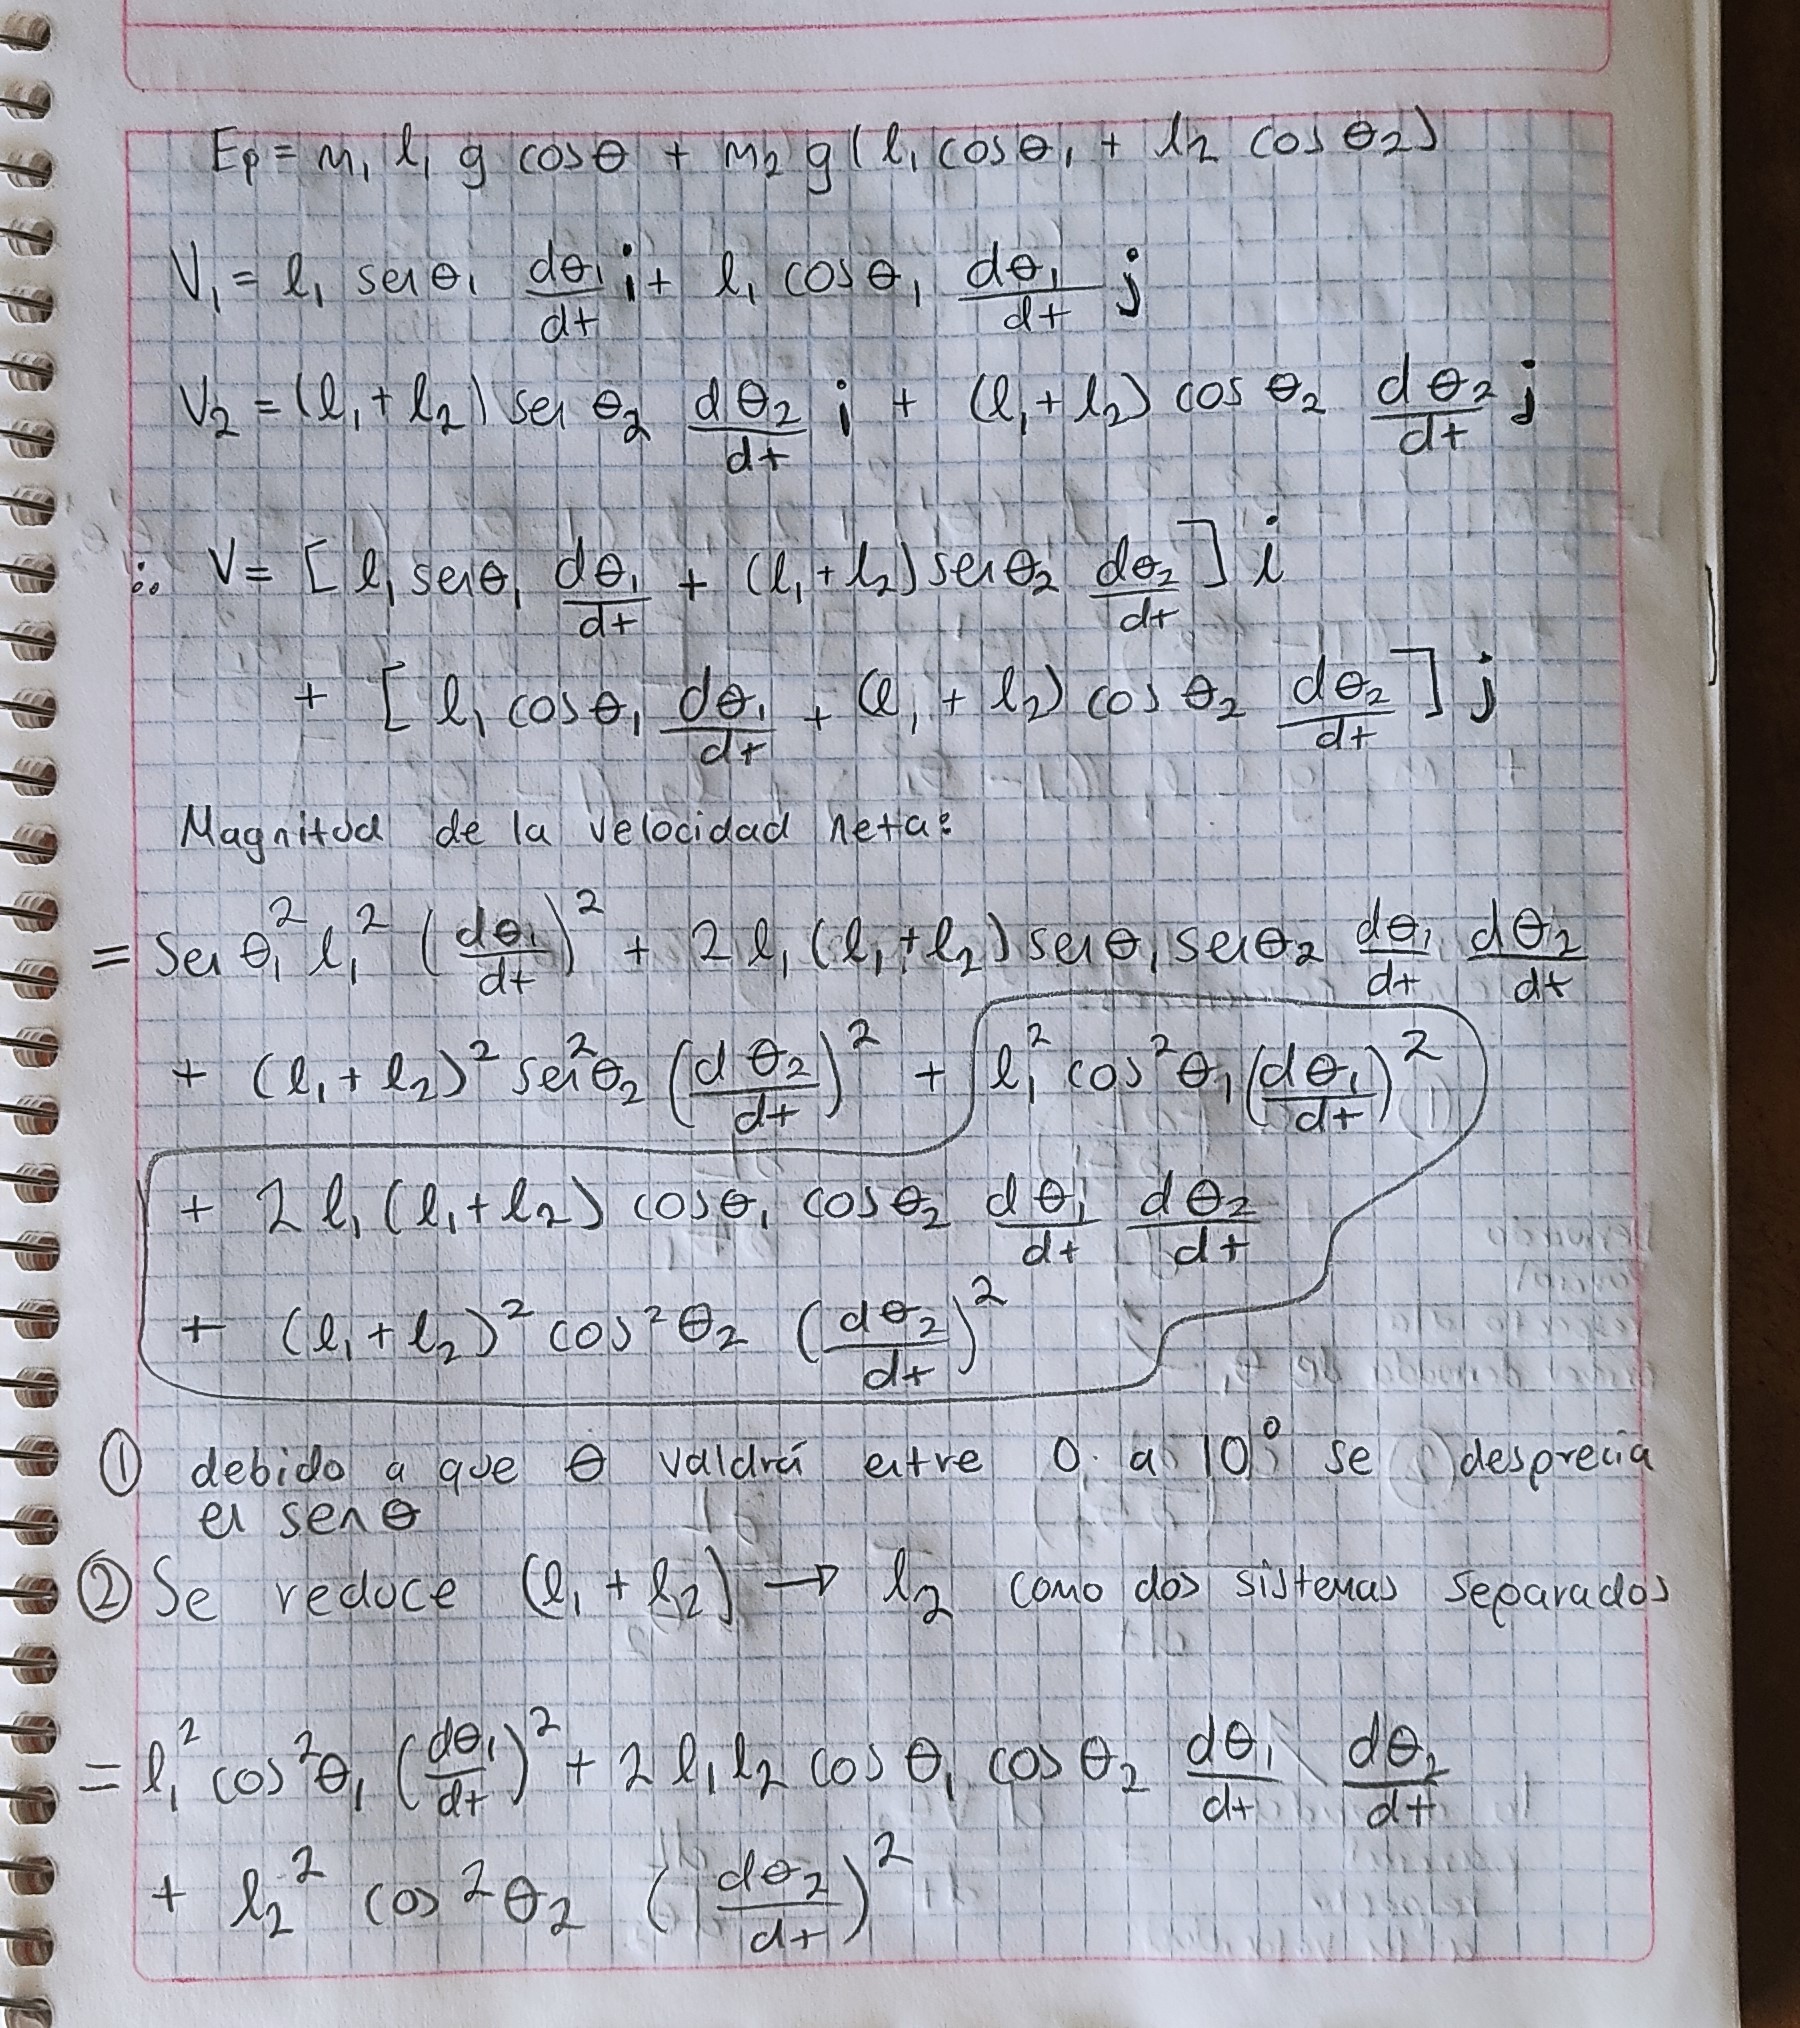 Ep = m₁ l₁ g cosθ + m₂ g (l₁ cosθ₁ + l₂ cosθ₂)
V₁ = l₁ senθ₁ dθ₁/dt i + l₁ cosθ₁ dθ₁/dt j
V₂ = (l₁ + l₂) sen θ₂ dθ₂/dt i + (l₁ + l₂) cos θ₂ dθ₂/dt j
∴ V = [l₁ senθ₁ dθ₁/dt + (l₁ + l₂) senθ₂ dθ₂/dt] i
+ [l₁ cosθ₁ dθ₁/dt + (l₁ + l₂) cos θ₂ dθ₂/dt] j
Magnitud de la velocidad neta:
= sen θ₁² l₁² (dθ₁/dt)² + 2 l₁ (l₁ + l₂) senθ₁ senθ₂ dθ₁/dt dθ₂/dt
+ (l₁ + l₂)² sen²θ₂ (dθ₂/dt)² + l₁² cos²θ₁ (dθ₁/dt)²
+ 2 l₁ (l₁ + l₂) cosθ₁ cosθ₂ dθ₁/dt dθ₂/dt
+ (l₁ + l₂)² cos²θ₂ (dθ₂/dt)²
① debido a que θ valdrá entre 0 a 10° se desprecia
el sen θ
② Se reduce (l₁ + l₂) → l₂ como dos sistemas separados
= l₁² cos²θ₁ (dθ₁/dt)² + 2 l₁ l₂ cos θ₁ cos θ₂ dθ₁/dt dθ₂/dt
+ l₂² cos²θ₂ (dθ₂/dt)²